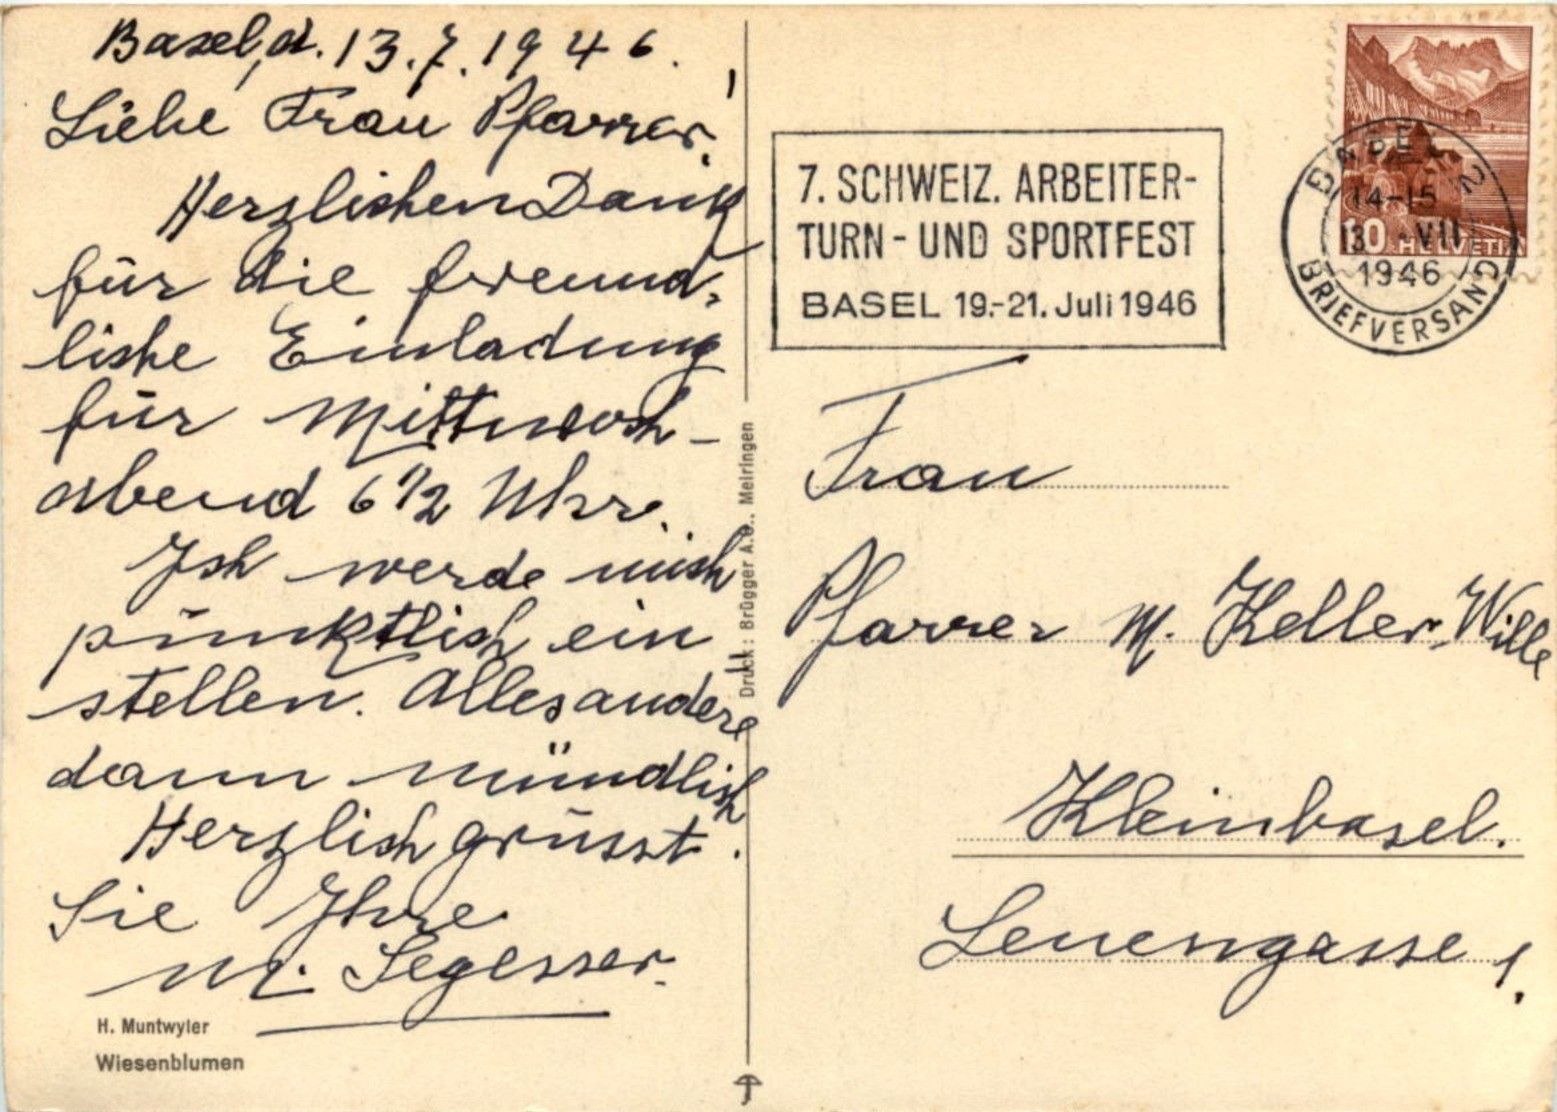 Basel, d. 13.7.1946.
Liebe Frau Pfarrer!
Herzlichen Dank
für die freund-
liche Einladung
für Mittwoch-
abend 6 1/2 Uhr.
Ich werde mich
pünktlich ein
stellen. Alles andere
dann mündlich
Herzlich grüsst.
Sie Ihre
M. Segesser.
H. Muntwyler
Wiesenblumen
Druck: Brügger A.G., Meiringen
7. SCHWEIZ. ARBEITER-
TURN- UND SPORTFEST
BASEL 19.-21. Juli 1946
BASEL 2
14-15
13. VII
1946
BRIEFVERSAND
10 HELVETIA
Frau
Pfarrer M. Keller-Wille
Kleinbasel.
Leuengasse 1.